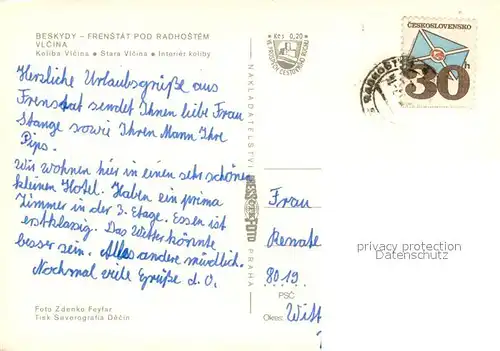 BESKYDY – FRENŠTÁT POD RADHOŠTĚM
VLČINA
Koliba Vlčina • Stará Vlčina • Interiér koliby
Herzliche Urlaubsgrüße aus
Frenstat sendet Ihnen liebe Frau
Stange sowie Ihren Mann Ihre
Pips.
Wir wohnen hier in einen sehr schönen
kleinen Hotel. Haben ein prima
Zimmer in der 3. Etage. Essen ist
erstklassig. Das Wetter könnte
besser sein. Alles andere mündlich.
Nochmal viele Grüße d. O.
Foto Zdenko Feyfar
Tisk Severografia Děčín
NAKLADATELSTVÍ
PRESSFOTO
PRAHA
Kčs 0,20
VE PROSPĚCH CESTOVNÍHO RUCHU
ČESKOSLOVENSKO
30 h
Frau
Renate
8019
PSČ
Okres: Witt
privacy protection
Datenschutz